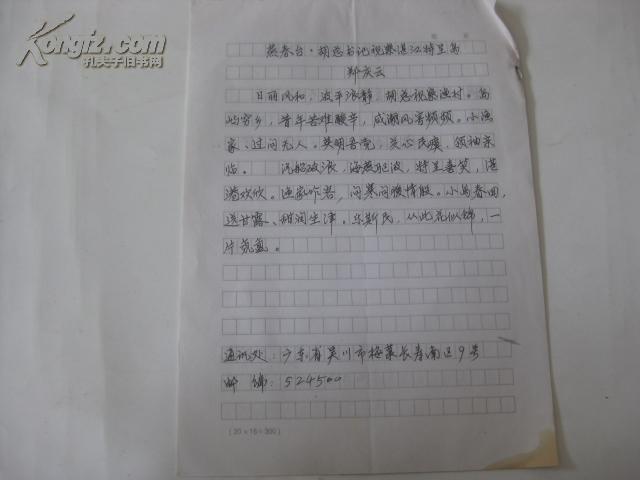 Kongfz.com
孔夫子旧书网
燕春台·胡总书记视察湛江特呈岛
郑庆云
日丽风和，波平浪静，胡总视察渔村。岛
屿穷乡，昔年苦难酸辛，咸潮风害频频。小渔
家、过问无人。英明吾党，关心民瘼，领袖亲
临。 汽船破浪，海燕驼波，特呈喜笑，湛
港欢欣。渔家咋若，问寒问暖情殷。小岛春回，
送甘露、甜润生津。乐斯民，从此花似锦，一
片氛氲。
通讯处：广东省吴川市梅菉长寿南区9号
邮编：524500
(20×15=300)